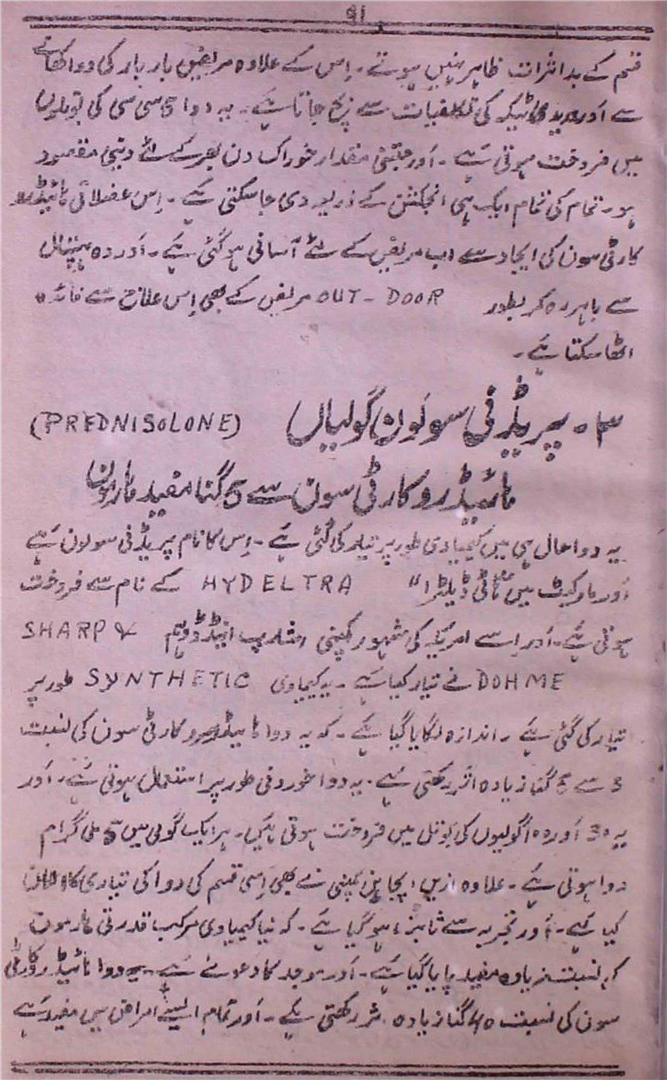 91
قسم کے بد اثرات ظاہر نہیں ہوتے۔ اِس کے علاوہ مریض بار بار کی دوا کھانے
سے اَور ٹیکہ کی تکلیفات سے بچ جاتا ہَے۔ یہ دوا 5 سی سی کی بوتلوں
میں فروخت ہوتی ہَے۔ اَور جتنی مقدار خوراک دن بھر کے لئے دینی مقصود
ہو۔ تمام کی تمام ایک ہی انجکشن کے ذریعہ دی جا سکتی ہَے۔ اِس عضلاتی ہائیڈرو
کارٹی سون کی ایجاد سے اب مریض کے لئے آسانی ہو گئی ہَے۔ اَور وہ ہسپتال
سے باہر رہ کر بطور OUT-DOOR مریض کے بھی اِس علاج سے فائدہ
اٹھا سکتا ہَے۔
۳۔ پریڈنی سولون گولیاں (PREDNISOLONE)
ہائیڈروکارٹی سون سے 5 گنا مفید ہارمون
یہ دوا حال ہی میں کیمیاوی طور پر تیار کی گئی ہَے۔ اِس کا نام پریڈنی سولون ہَے
اَور مارکیٹ میں "ہائی ڈیلٹرا" HYDELTRA کے نام سے فروخت
ہوتی ہَے۔ اَور اِسے امریکہ کی مشہور کمپنی شارپ اینڈ ڈوہم SHARP &
DOHME نے تیار کیا ہَے۔ یہ کیمیاوی SYNTHETIC طور پر
تیار کی گئی ہَے۔ اندازہ لگایا گیا ہَے۔ کہ یہ دوا ہائیڈروکارٹی سون کی نسبت
3 سے 5 گنا زیادہ اثر رکھتی ہَے۔ یہ دوا خوردنی طور پر استعمال ہوتی ہَے۔ اَور
یہ 30 اَور گولیوں کی بوتل میں فروخت ہوتی ہَیں۔ ہر ایک گولی میں 5 ملی گرام
دوا ہوتی ہَے۔ علاوہ ازیں کمپنی نے بھی اِسی قسم کی دوا کی تیاری کا اعلان
کیا ہَے۔ اَور تجربہ سے ثابت ہو گیا ہَے۔ کہ نیا کیمیاوی مرکب قدرتی ہارمون
کی نسبت زیادہ مفید پایا گیا ہَے۔ اَور موجد کا دعوےٰ ہَے۔ یہ دوا ہائیڈروکارٹی
سون کی نسبت 40 گنا زیادہ اثر رکھتی ہَے۔ اَور تمام ایسے امراض میں مفید ہَے